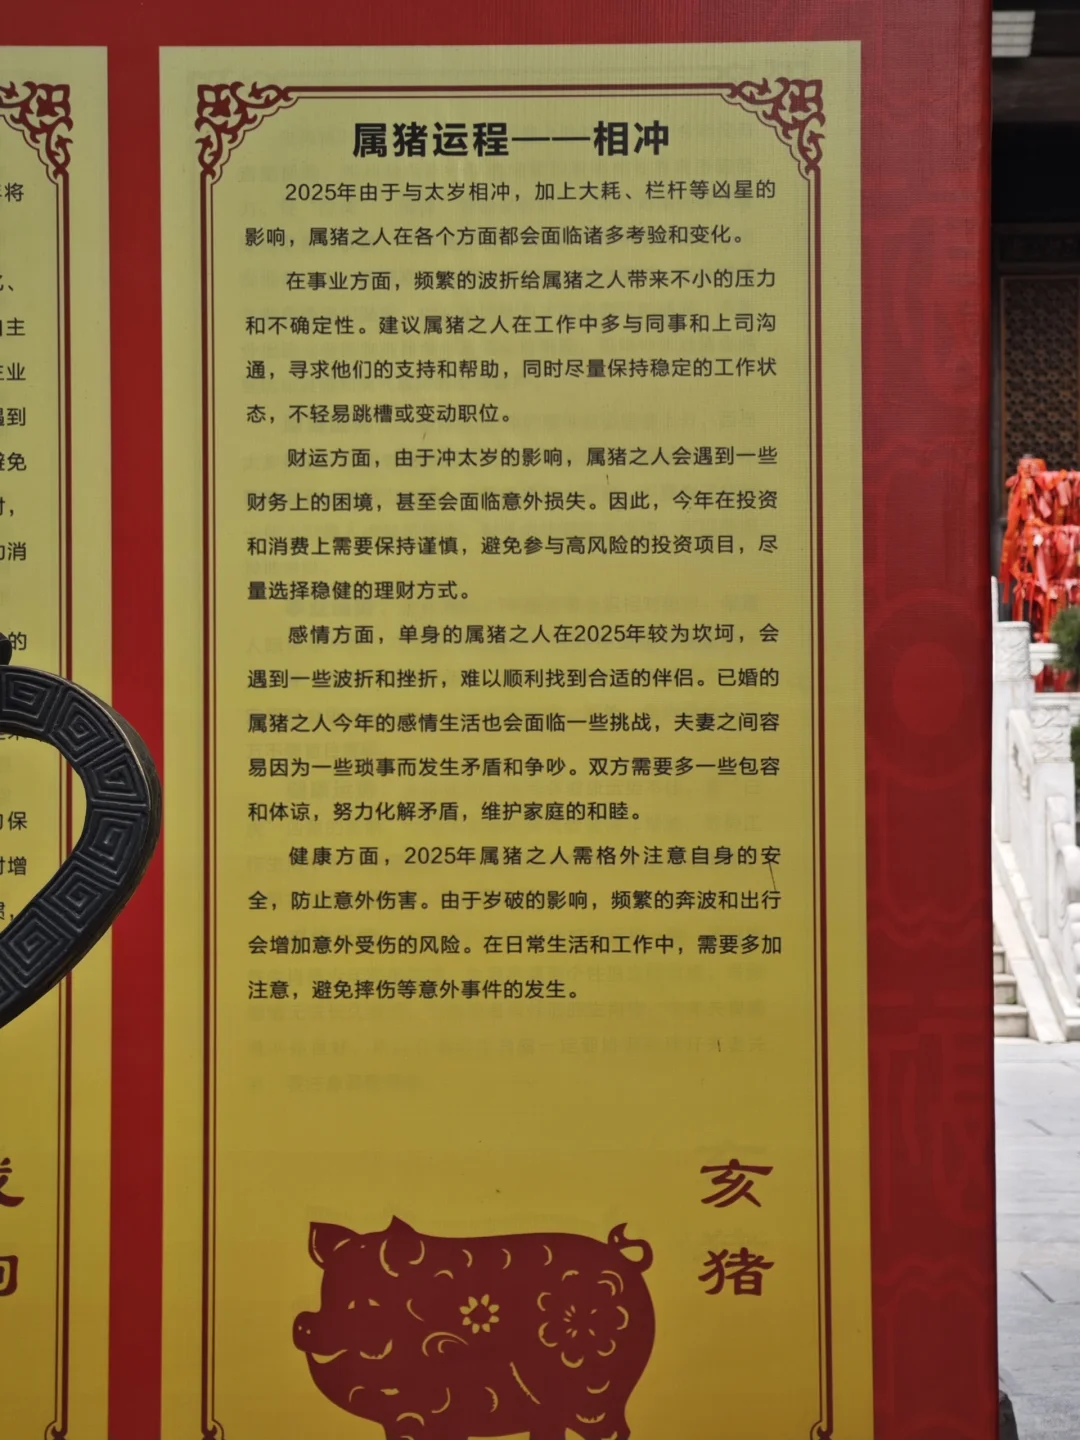 属猪运程——相冲
2025年由于与太岁相冲，加上大耗、栏杆等凶星的
影响，属猪之人在各个方面都会面临诸多考验和变化。
在事业方面，频繁的波折给属猪之人带来不小的压力
和不确定性。建议属猪之人在工作中多与同事和上司沟
通，寻求他们的支持和帮助，同时尽量保持稳定的工作状
态，不轻易跳槽或变动职位。
财运方面，由于冲太岁的影响，属猪之人会遇到一些
财务上的困境，甚至会面临意外损失。因此，今年在投资
和消费上需要保持谨慎，避免参与高风险的投资项目，尽
量选择稳健的理财方式。
感情方面，单身的属猪之人在2025年较为坎坷，会
遇到一些波折和挫折，难以顺利找到合适的伴侣。已婚的
属猪之人今年的感情生活也会面临一些挑战，夫妻之间容
易因为一些琐事而发生矛盾和争吵。双方需要多一些包容
和体谅，努力化解矛盾，维护家庭的和睦。
健康方面，2025年属猪之人需格外注意自身的安
全，防止意外伤害。由于岁破的影响，频繁的奔波和出行
会增加意外受伤的风险。在日常生活和工作中，需要多加
注意，避免摔伤等意外事件的发生。
亥
猪
将
、
主
业
到
免
时，
消
的
保
增